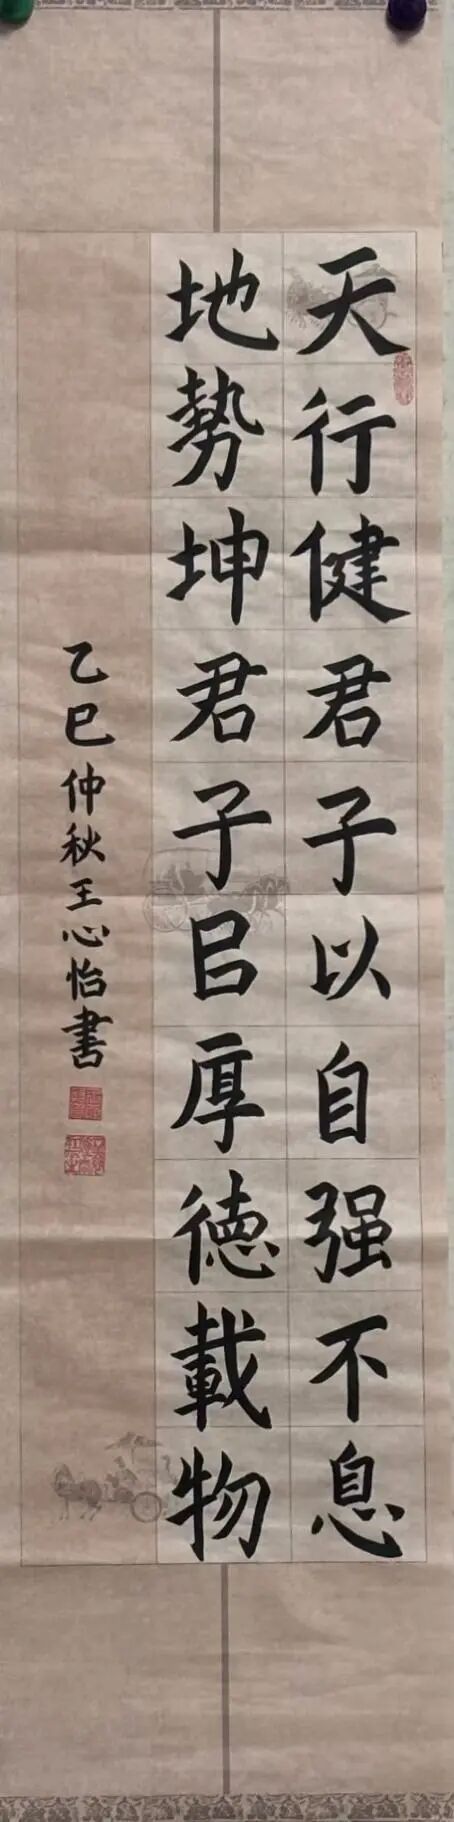 天行健君子以自强不息
地勢坤君子㠯厚徳載物
乙巳仲秋王心怡書